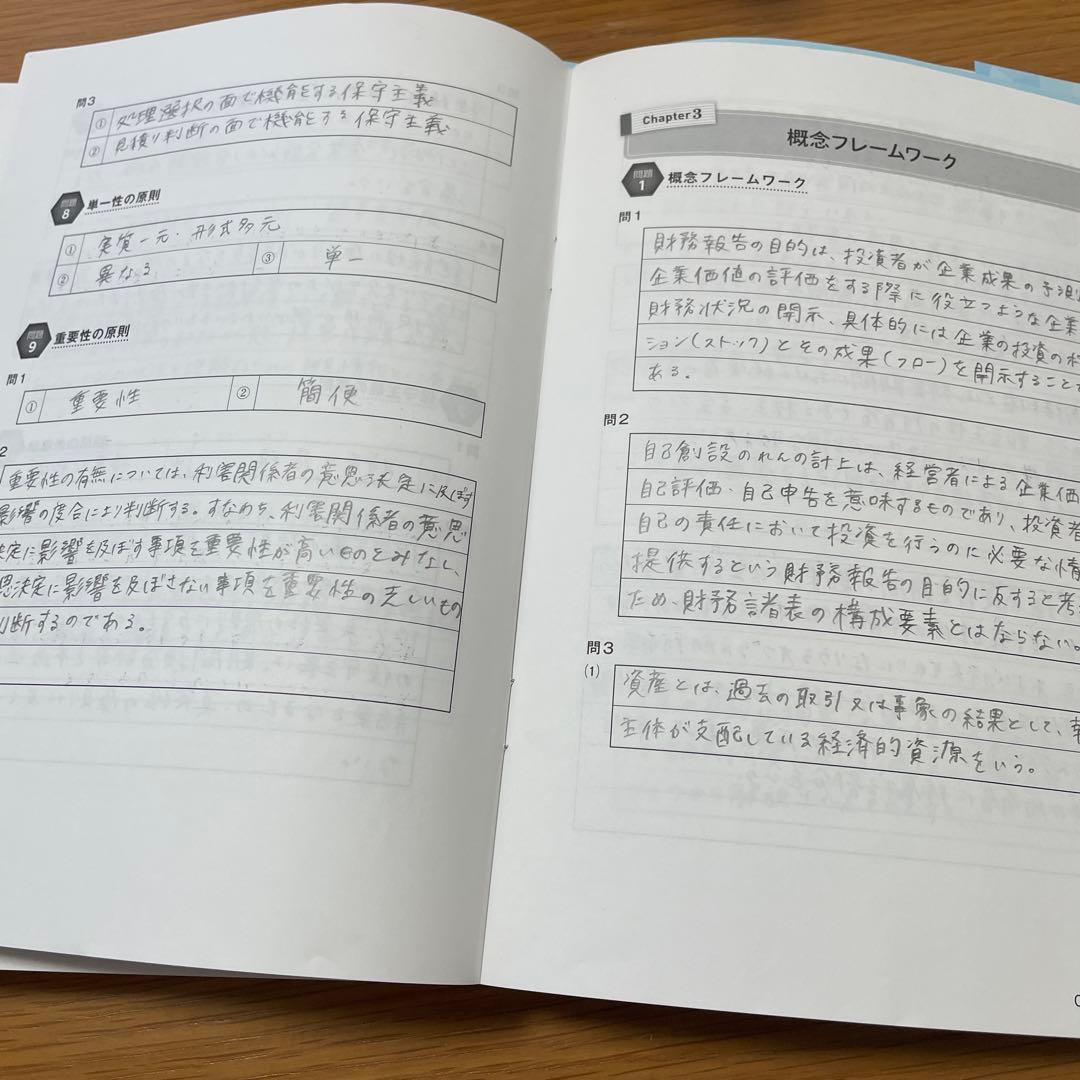 問3
① 処理選択の面で機能をする保守主義
② 見積り判断の面で機能をする保守主義
問題8 単一性の原則
① 実質一元・形式多元
② 異なる ③ 単一
問題9 重要性の原則
問1
① 重要性 ② 簡便
2
重要性の有無については、利害関係者の意思決定に及ぼす
影響の度合により判断する。すなわち、利害関係者の意思
決定に影響を及ぼす事項を重要性が高いものとみなし、
思決定に影響を及ぼさない事項を重要性の乏しいもの
判断するのである。
Chapter3
概念フレームワーク
問題1 概念フレームワーク
問1
財務報告の目的は、投資者が企業成果の予測
企業価値の評価をする際に役立つような企業
財務状況の開示、具体的には企業の投資のポ
ション(ストック)とその成果(フロー)を開示することで
ある。
問2
自己創設のれんの計上は、経営者による企業価
自己評価・自己申告を意味するものであり、投資者
自己の責任において投資を行うのに必要な情
提供するという財務報告の目的に反すると考
ため、財務諸表の構成要素とはならない。
問3
(1)
資産とは、過去の取引又は事象の結果として、報
主体が支配している経済的資源をいう。